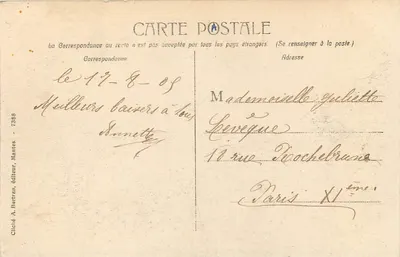 CARTE POSTALE
La Correspondance au recto n'est pas acceptée par tous les pays étrangers. (Se renseigner à la poste)
Correspondance
Adresse
le 17-8-05
Meilleurs baisers à tous
Annette
Mademoiselle Juliette
Levêque
18 rue Rochebrune
Paris XIème
Cliché A. Bertrau, éditeur, Nantes - 7286